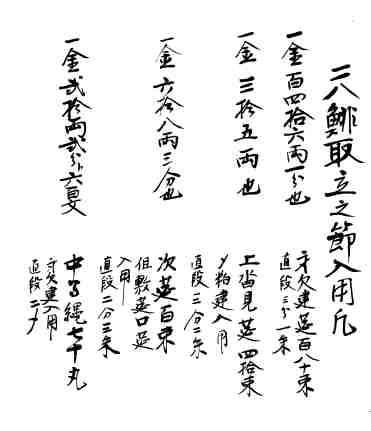 二八鯡取立之節入用凡
一金百四拾六両一分也
身欠建莚百八十束
直段三分一朱
一金三拾五両也
上沓見莚四拾束
〆粕建入用
直段三分二朱
一金六拾八両三分也
次莚百束
但敷莚口莚
入用
直段二分三朱
一金弐拾両弐分六匁
中る縄七千丸
身欠建入用
直段二〆